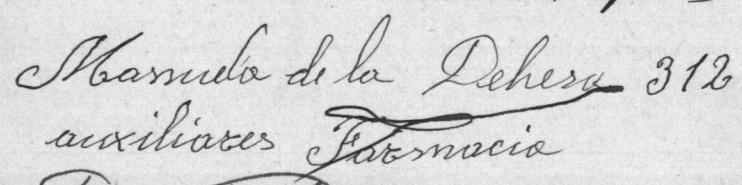 Manuela de la Dehesa 312
auxiliares Farmacia